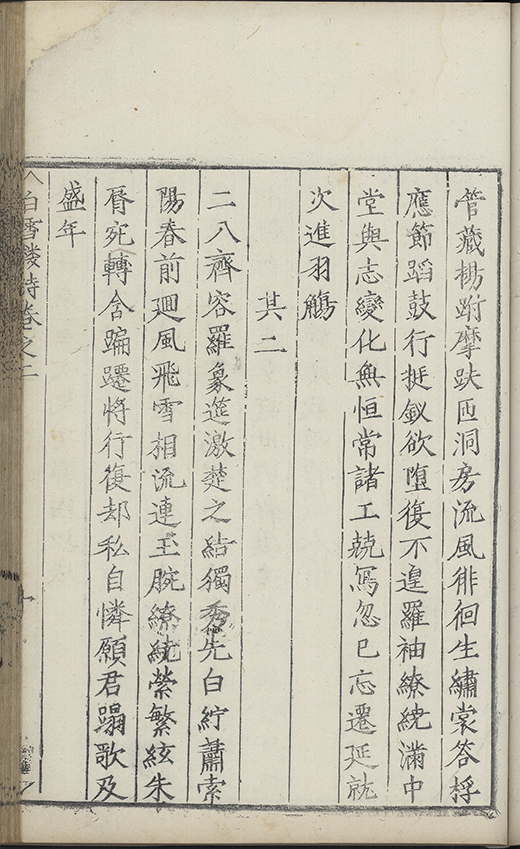 管藏揚跗摩趺匝洞房流風徘徊生繡裳答桴
應節蹈鼓行挺釵欲墮復不遑羅袖繚繞滿中
堂與志變化無恒常諸工競寫忽已忘遷延就
次進羽觴
其二
二八齊容羅象筵激楚之結獨秀先白紵蕭索
陽春前廻風飛雪相流連玉腕繚繞縈繁絃朱
脣宛轉含蹁躚將行復却私自憐願君蹋歌及
盛年
白雪樓詩卷之二